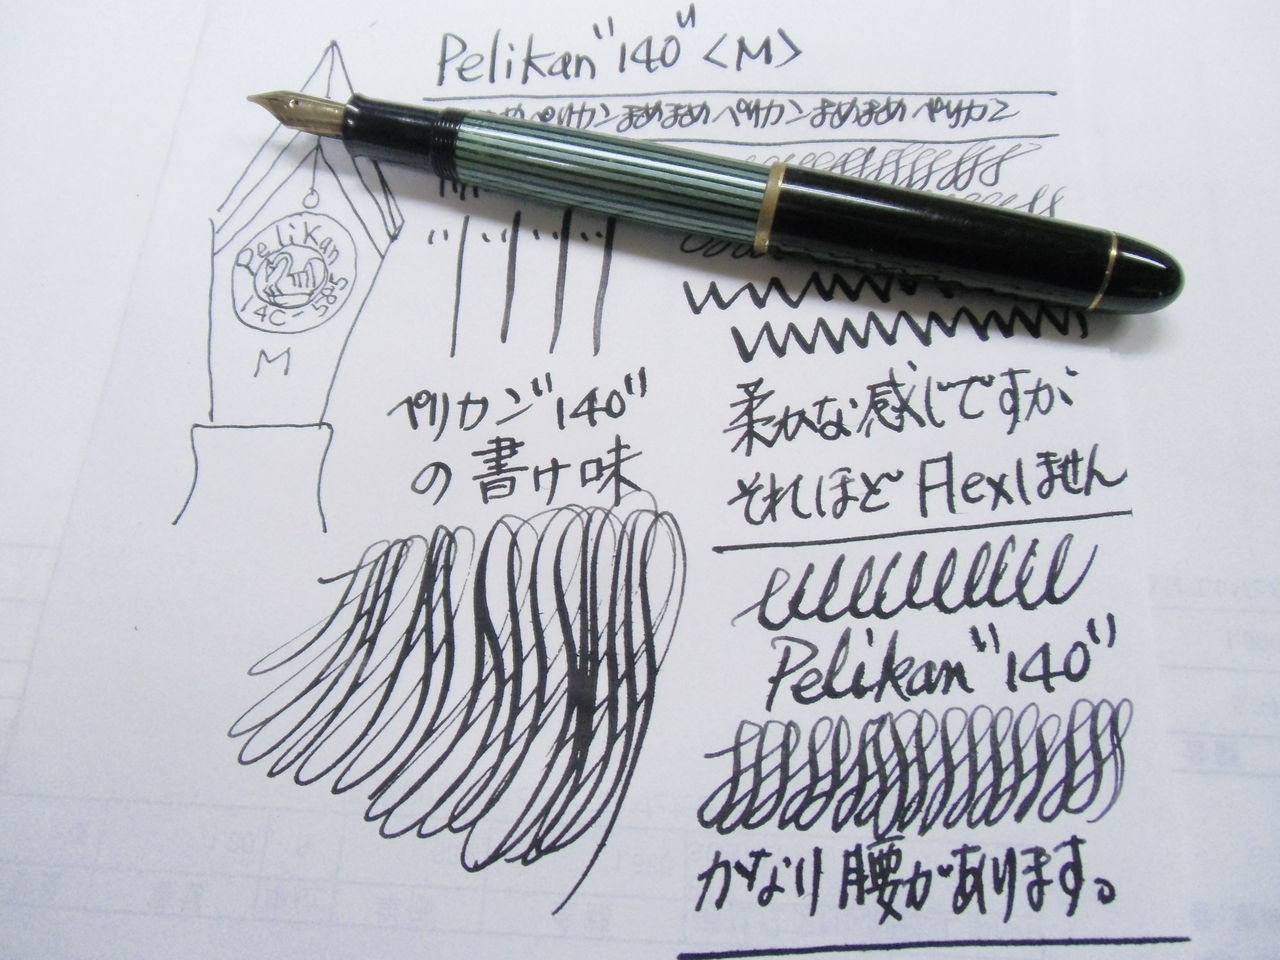 Pelikan "140" <M>
ペリカン まめまめ ペリカン まめまめ ペリカン
Pelikan
14C-585
M
ペリカン"140"
の書け味
柔かな感じですが
それほど Flexしません
Pelikan "140"
かなり腰があります。